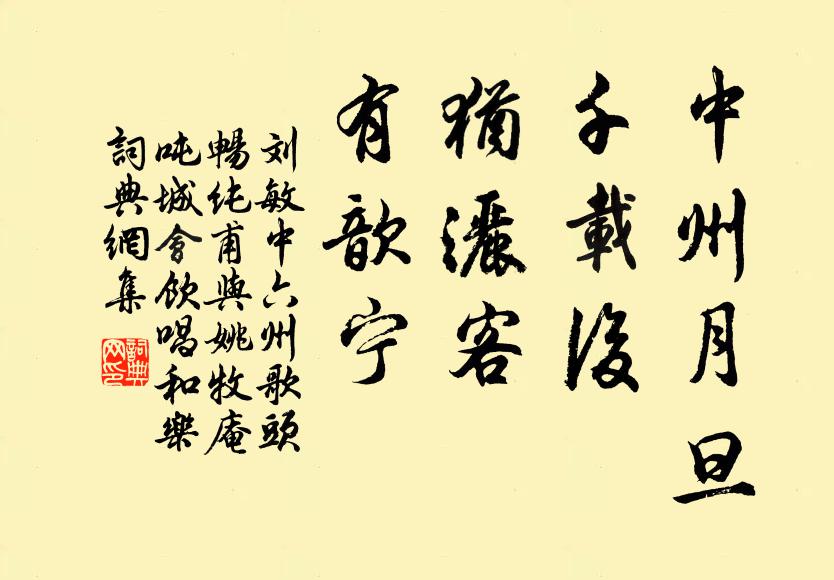 中州月旦
千載後
猶灑客
有歆宁
刘敏中六州歌頭
暢純甫與姚牧庵
吨城會飲唱和樂
詞典網集
詞典網印